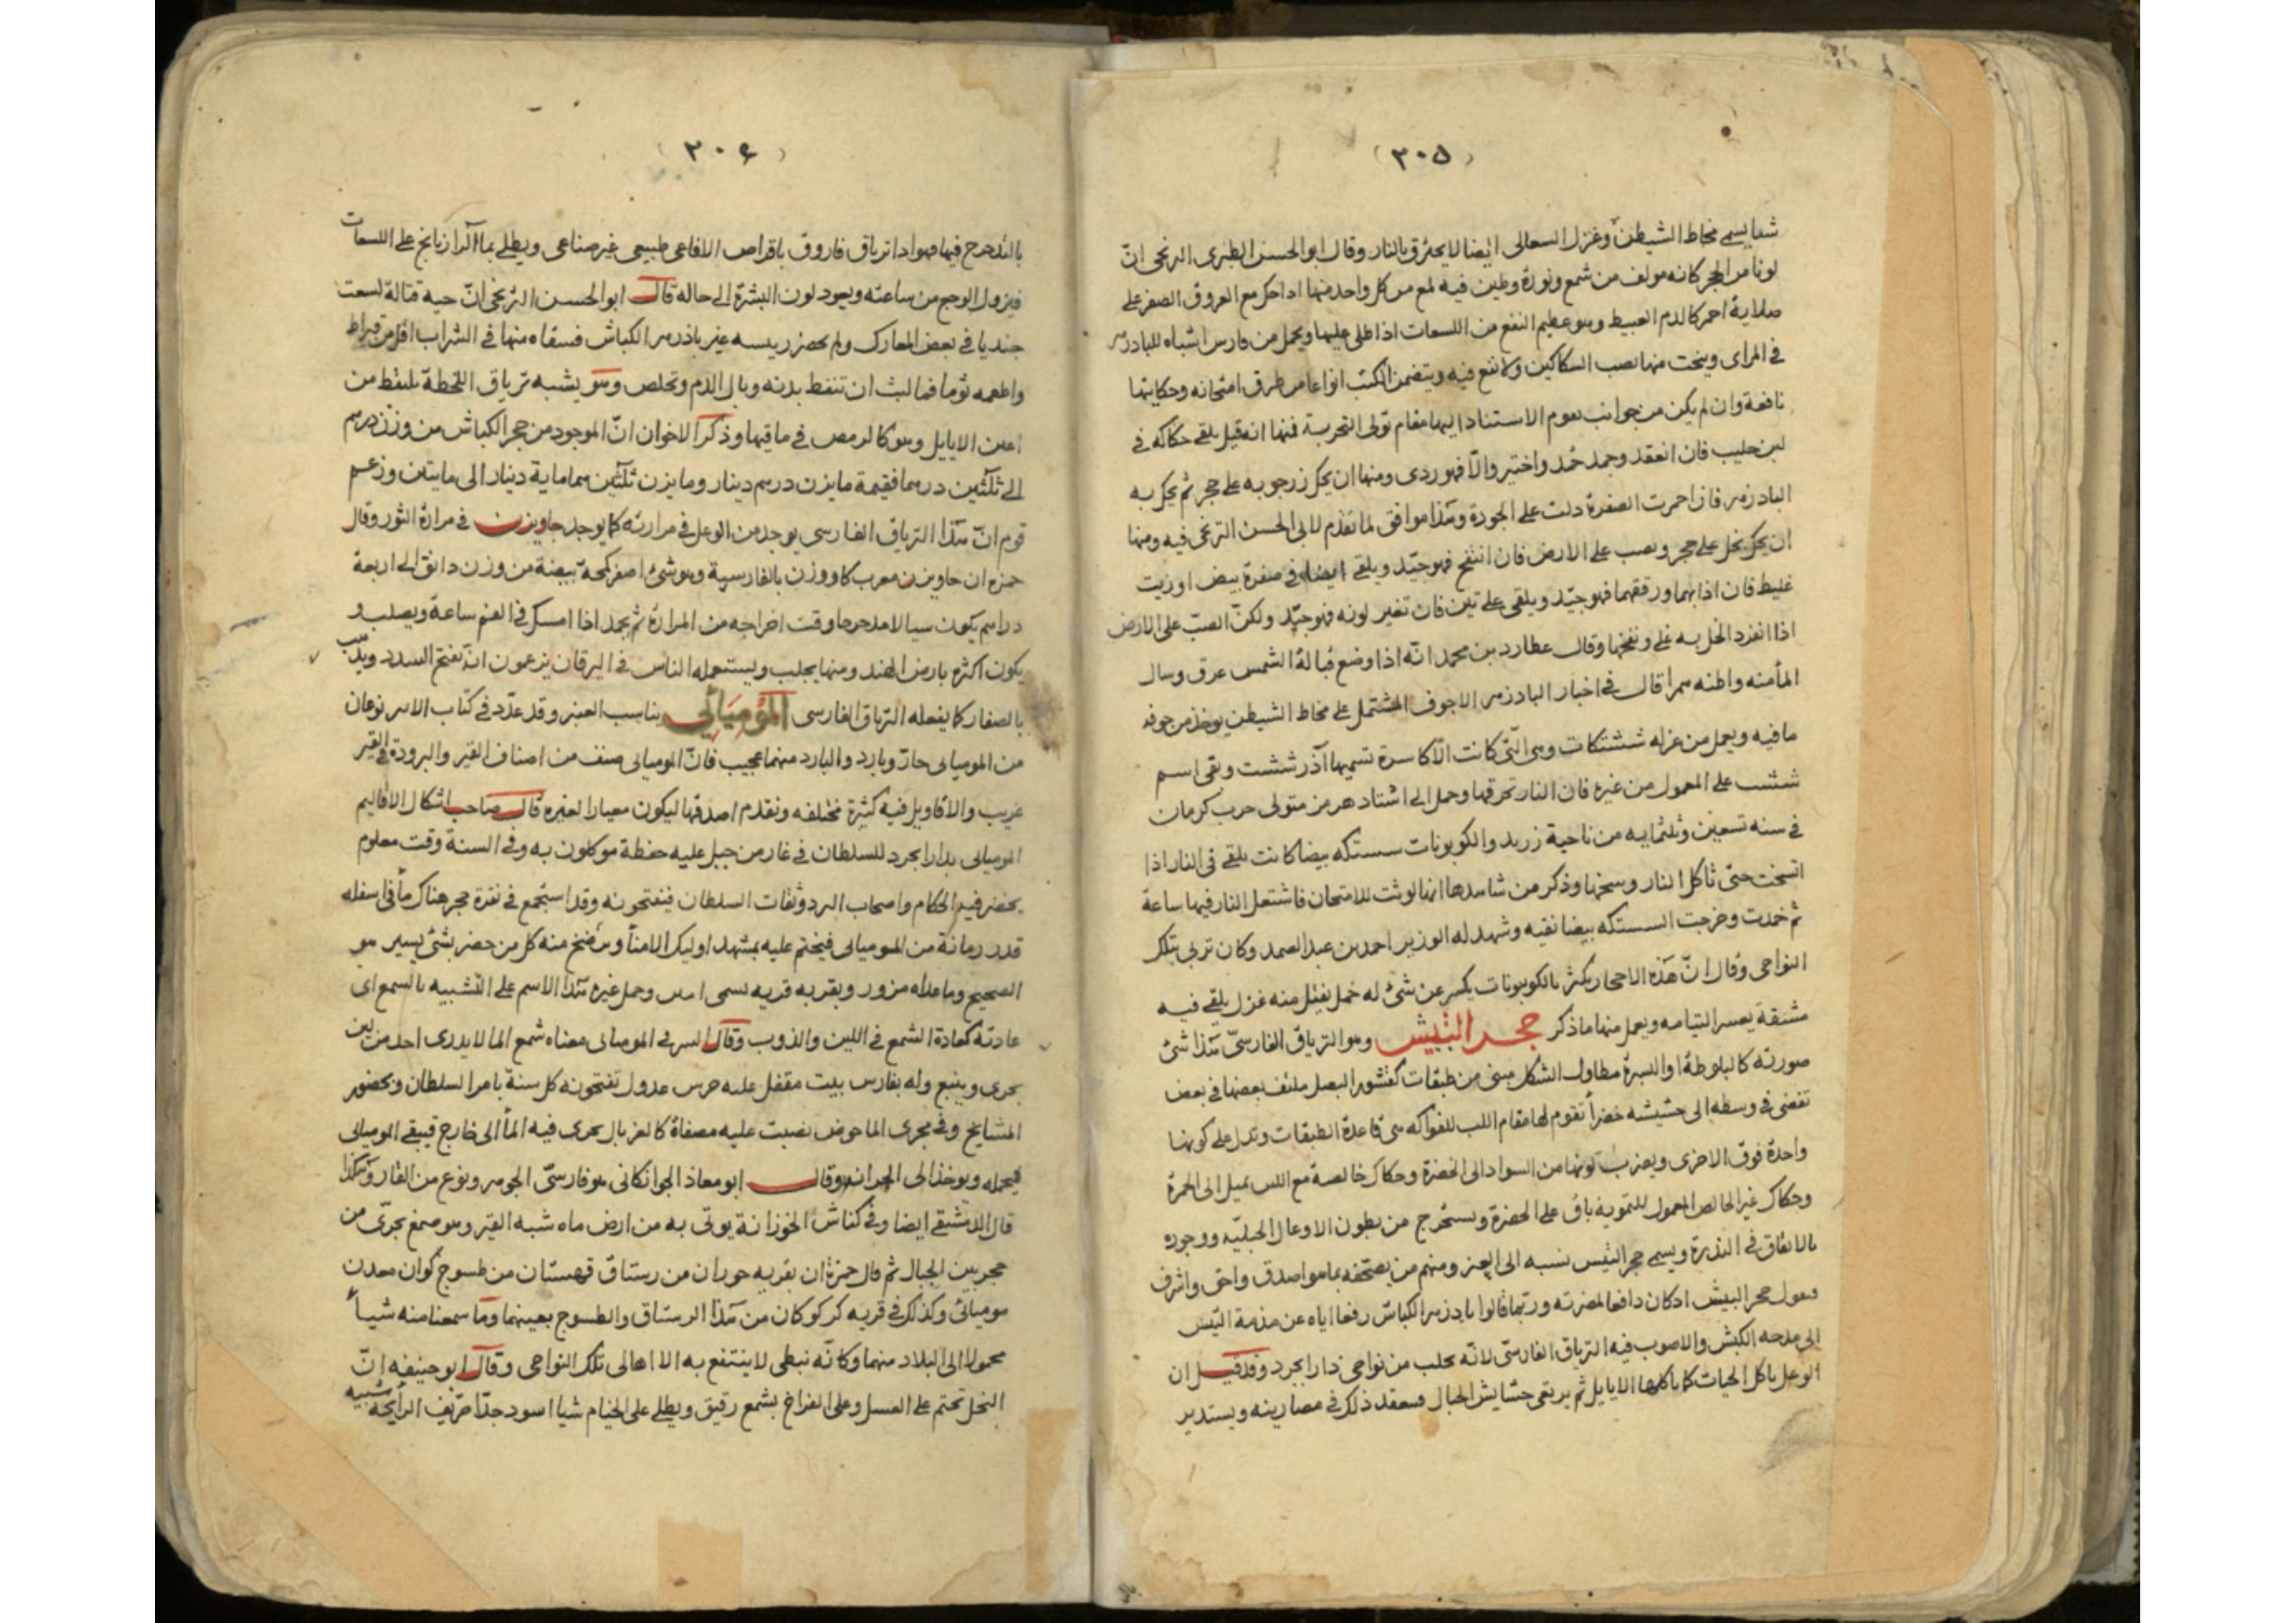 (٣٠٥)
شيا يسمى مخاط الشيطن وغزل السعالى ايضا لا يحترق بالنار وقال ابو الحسن الطبرى الترنجى انّ
لونا من الحجر كانه مولف من شمع ونورة وطين فيه لمع من كل واحد منها اذا حك مع العروق الصفر على
صلاية احمر كالدم العبيط وهو عظيم النفع من اللسعات اذا طلى عليها ويحمل من فارس اشباه للبادزهر
فى المراى وينحت منها نصب السكاكين ولا نفع فيه ويتضمن الكتب انواعا من طرق امتحانه وحكايتها
نافعة وان لم يكن من جوانب يقوم الاستناد اليها مقام تولى التجربة فمنها انه قيل يلقى حكاكه فى
لبن حليب فان انعقد وجمد حُمد واختير والّا فهو ردى ومنها ان يحك زرجوبه على حجر ثم يحك به
البادزهر فان احمرت الصفرة دلت على الجودة وهذا موافق لما تقدم لابى الحسن الترنجى فيه ومنها
ان يحك بخل على حجر ويصب على الارض فان انتفخ فهو جيّد ويلقى ايضا فى صفرة بيض او زيت
غليظ فان اذابهما ورققهما فهو جيّد ويلقى على تين فان تغير لونه فهو جيّد ولكنّ الصبّ على الارض
اذا انفرد الخل به غلى ونفخها وقال عطارد بن محمد انّه اذا وضع قبالة الشمس عرق وسال
الما منه واظنه سمرا قال فى اخبار البادزهر الاجوف المشتمل على مخاط الشيطن يوخذ من جوفه
ما فيه ويعمل من غزله ششتكات وهى الّتى كانت الاكاسرة تسميها آذرششت وبقى اسم
ششت على المعمول من غيره فان النار تحرقها وحمل الى اشتادهرمز متولى حرب كرمان
فى سنه تسعين وثلثمايه من ناحية زرند والكوبونات سستكه بيضا كانت يلقى فى النار اذا
اتسخت حتى تاكل النار وسخها وذكر من شاهدها انها لوثت للامتحان فاشتعل النار فيها ساعة
ثم خمدت وخرجت السستكه بيضا نقيه وشهد له الوزير احمد بن عبد الصمد وكان تربى بتلك
النواحى وقال انّ هذه الاحجار يكثر بالكوبونات يكسر عن شئ له خمل يفتل منه غزل يلقى فيه
مشقة يعسر التيامه ويعمل منها ما ذكر حجر التيس وهو الترياق الفارسىّ هذا شئ
صورته كالبلوطة او البسرة مطاول الشكل مبنى من طبقات كقشور البصل ملتف بعضها فى بعض
تفضى فى وسطه الى حشيشه خضرا تقوم لها مقام اللب للفواكه هى قاعدة الطبقات وتدل على كونها
واحدة فوق الاخرى ويضرب لونها من السواد الى الخضرة وحكاك خالصة مع اللبن يميل الى الحمرة
وحكاك غير الخالص المعمول للتمويه باق على الخضرة ويستخرج من بطون الاوعال الجبليّه ووجوده
بالاتفاق فى الندرة ويسمى حجر التيس نسبه الى العنز ومنهم من يصحّفه بما هو اصدق واحق واشرف
فيقول حجر البيش اذ كان دافعا لمضرته وربّما قالوا بادزهر الكباش رفعا اياه عن مذمة التيس
الى مدحه الكبش والاصوب فيه الترياق الفارسىّ لانّه يجلب من نواحى دارابجرد وقد قيل ان
الوعل ياكل الحيات كما ياكلها الايايل ثم يرتقى حشايش الجبال فينعقد ذلك فى مصارينه ويستدير
(٣٠٦)
بالتدحرج فيها فهو اذا ترياق فاروق باقراص الافاعى طبيعى غير صناعى ويطلى بما الرازيانج على اللسعات
فيزول الوجع من ساعته ويعود لون البشرة الى حاله قال ابو الحسن الترنجى انّ حيه قتالة لسعت
جنديا فى بعض المعارك ولم يحضر ريسه غير باذزهر الكباش فسقاه منها فى الشراب اقل من قيراط
واطعمه ثوما فما لبث ان تنفط بدنه وبال الدم وتخلص وهو يشبه ترياق اللخطة يلتقط من
اعين الايايل وهو كالرمص فى ماقيها وذكر الاخوان انّ الموجود من حجر الكباش من وزن درهم
الى ثلثين درهما فقيمة ما يزن درهم دينار وما يزن ثلثين هما ماية دينار الى مايتين وزعم
قوم انّ هذا الترياق الفارسى يوجد من الوعل فى مرارته كما يوجد جاويزن فى مرارة الثور وقال
حمزه ان جاويزن معرب كاووزن بالفارسية وهو شئ اصفر كمحّة بيضة من وزن دانق الى اربعة
دراهم يكون سيالا مدحرجا وقت اخراجه من المرارة ثم يجمد اذا امسك فى الفم ساعة ويصلب و
يكون اكثره بارض الهند ومنها يجلب ويستعمله الناس فى اليرقان يزعمون انّه يفتح السدد ويذهب
بالصفار كما يفعله الترياق الفارسى المُومِيَائِى يناسب العنبر وقد عدّد فى كتاب الاسر نوعان
من الموميائى حارّ وبارد والبارد منهما عجيب فانّ الموميائى صنف من اصناف القير والبرودة فى القير
غريب والاقاويل فيه كثيرة مختلفه ونقدم اصدقها ليكون معيارا لغيره قال صاحب اشكال الاقاليم
الموميائى بدارابجرد للسلطان فى غار من جبل عليه حفظة موكلون به وفى السنة وقت معلوم
يحضر فيه الحكام واصحاب البرد وثقات السلطان فيفتحونه وقد استجمع فى نقرة حجر هناك ما فى اسفله
قدر رمانة من الموميائى فيختم عليه بمشهد اوليك الامنا ويرضخ منه كل من حضر بشئ يسير هو
الصحيح وما عداه مزور ويقربه قريه تسمى وحمل غيره هذا الاسم على التشبيه بالشمع اى
عادته كعادة الشمع فى اللين والذوب وقال السرى الموميائى معناه شمع الما لا يدرى احد من اين
يجرى وينبع وله بفارس بيت مقفل عليه حرس عدول تفتحونه كل سنة بامر السلطان وبحضور
المشايخ وفى مجرى الما حوض نصبت عليه مصفاة كالغربال يجرى فيه الما الى خارج فيبقى الموميائى
فيحمله ويوخذ الى الخزانه وقال ابو معاذ الجوانكانى هو فارسىّ الجوهر ونوع من القار وهكذا
قال الدمشقى ايضا وفى كناش الخوزانة يوتى به من ارض ماه شبه القير وهو صمغ يجرّى من
حجر بين الجبال ثم قال حمزة ان بقريه حوران من رستاق قهستان من طسوج كوان معدن
موميائى وكذلك فى قريه كركوكان من هذا الرستاق والطسوج بعينهما وما سمعنا منه شيأ
محمولا الى البلاد منهما وكانّه نبطى لا ينتفع به الا اهالى تلك النواحى وقال ابو حنيفه انّ
النحل تختم على العسل وعلى الفراخ بشمع رقيق ويطلى على الختام شيا اسود جدّا حرّيف الرايحة شبيه